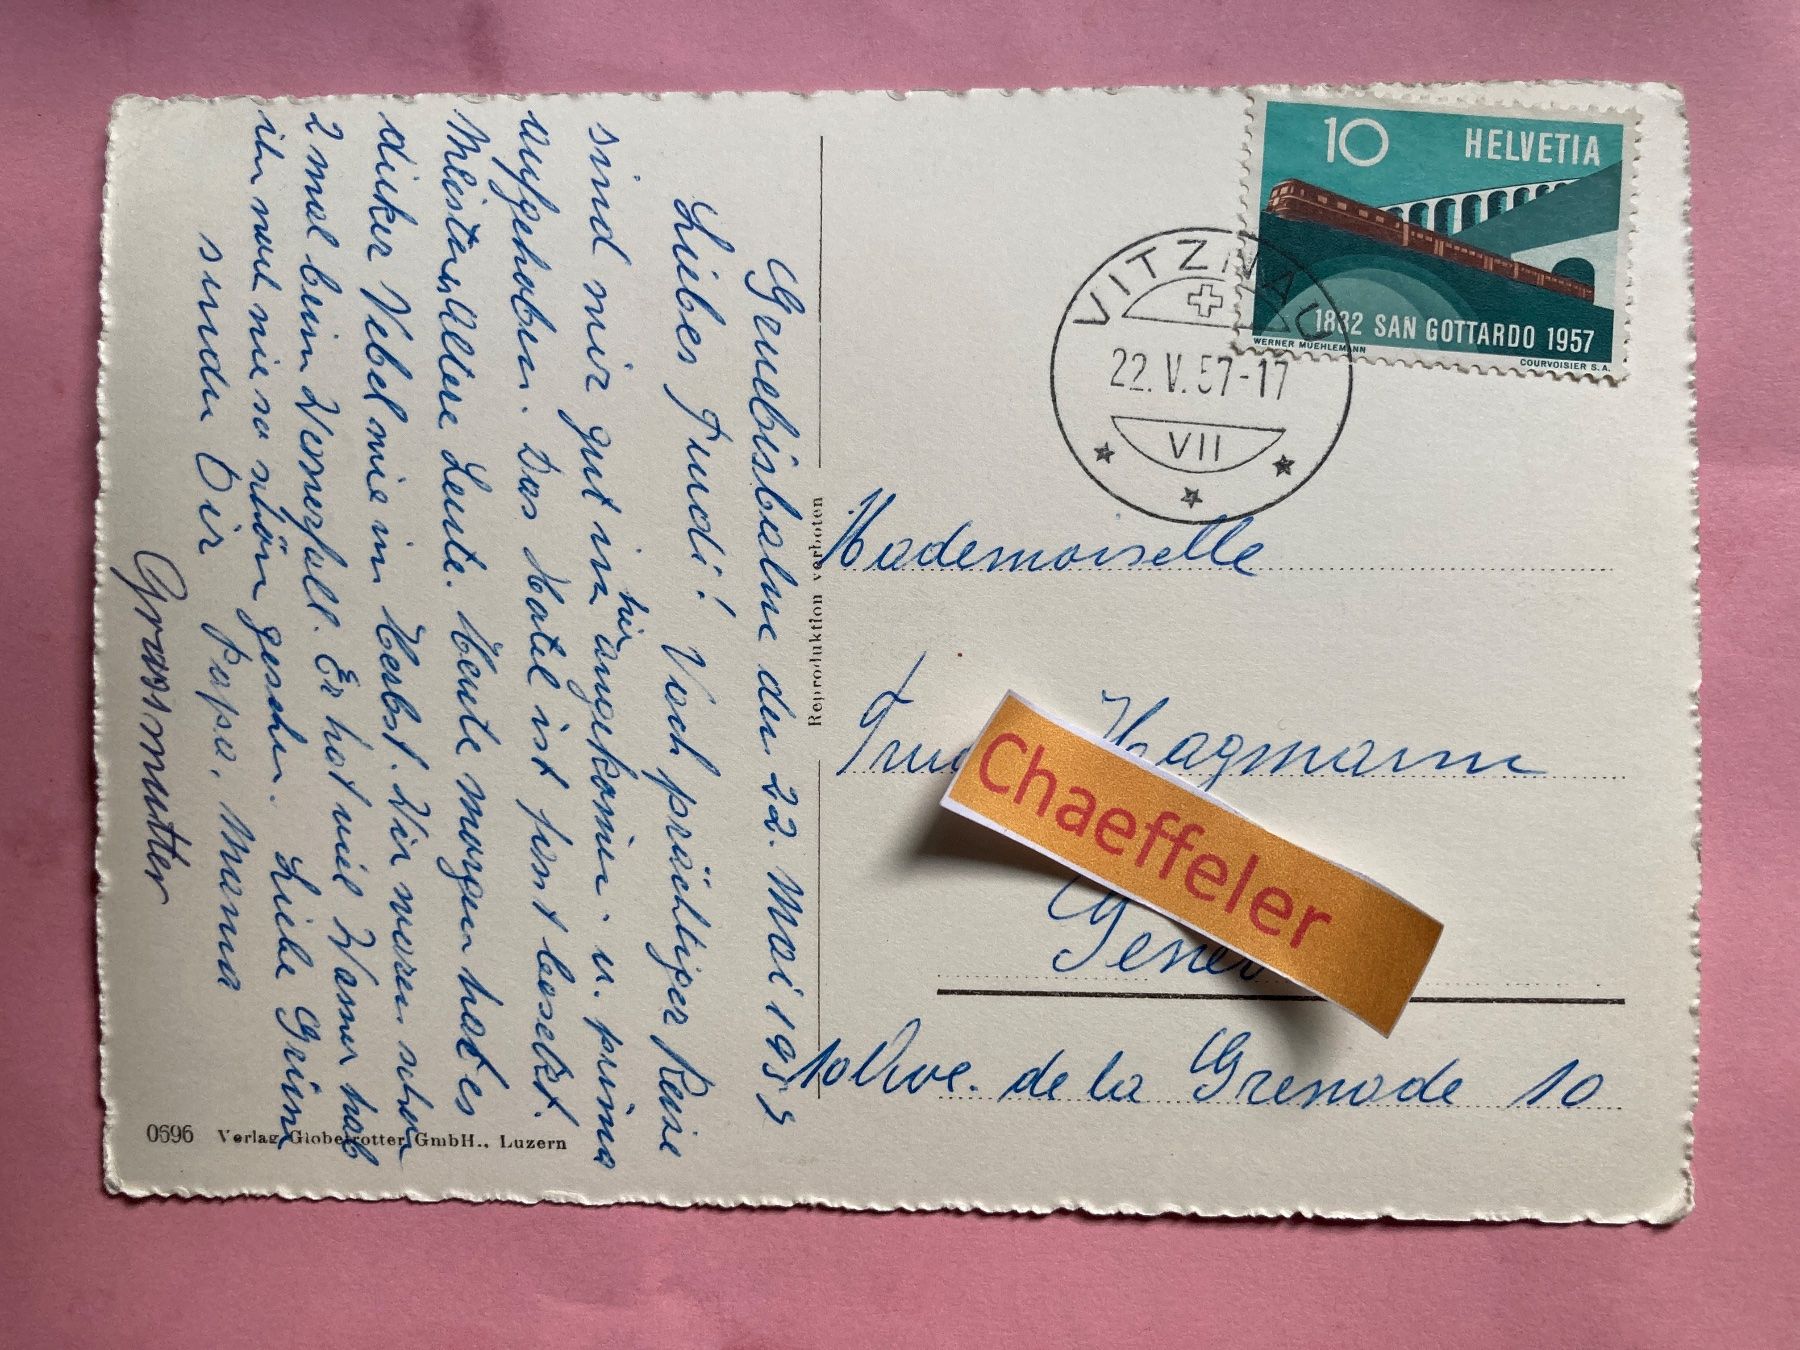 Gruebisbalm den 22. Mai 1957
Liebes Trudi! Nach prächtiger Reise
sind wir gut im angekomm. u. prima
hier
aufgehoben. Das Hotel ist sonst besetzt.
Meist ältere Leute. Heute morgen hat es
dicker Nebel wie im Herbst. Wir waren schon
2 mal beim Wasserfall. Er hat viel Wasser hab
ihn noch nie so schön gesehen. Liebe Grüsse
senden Dir Papa, Mama
Grossmutter
0696 Verlag Globetrotter GmbH., Luzern
Reproduktion verboten
10 HELVETIA
1882 SAN GOTTARDO 1957
WERNER MUEHLEMANN COURVOISIER S.A.
VITZNAU
22.V.57-17
VII
Mademoiselle
Hagmann
Chaeffeler
10 Ave. de la Grenade 10